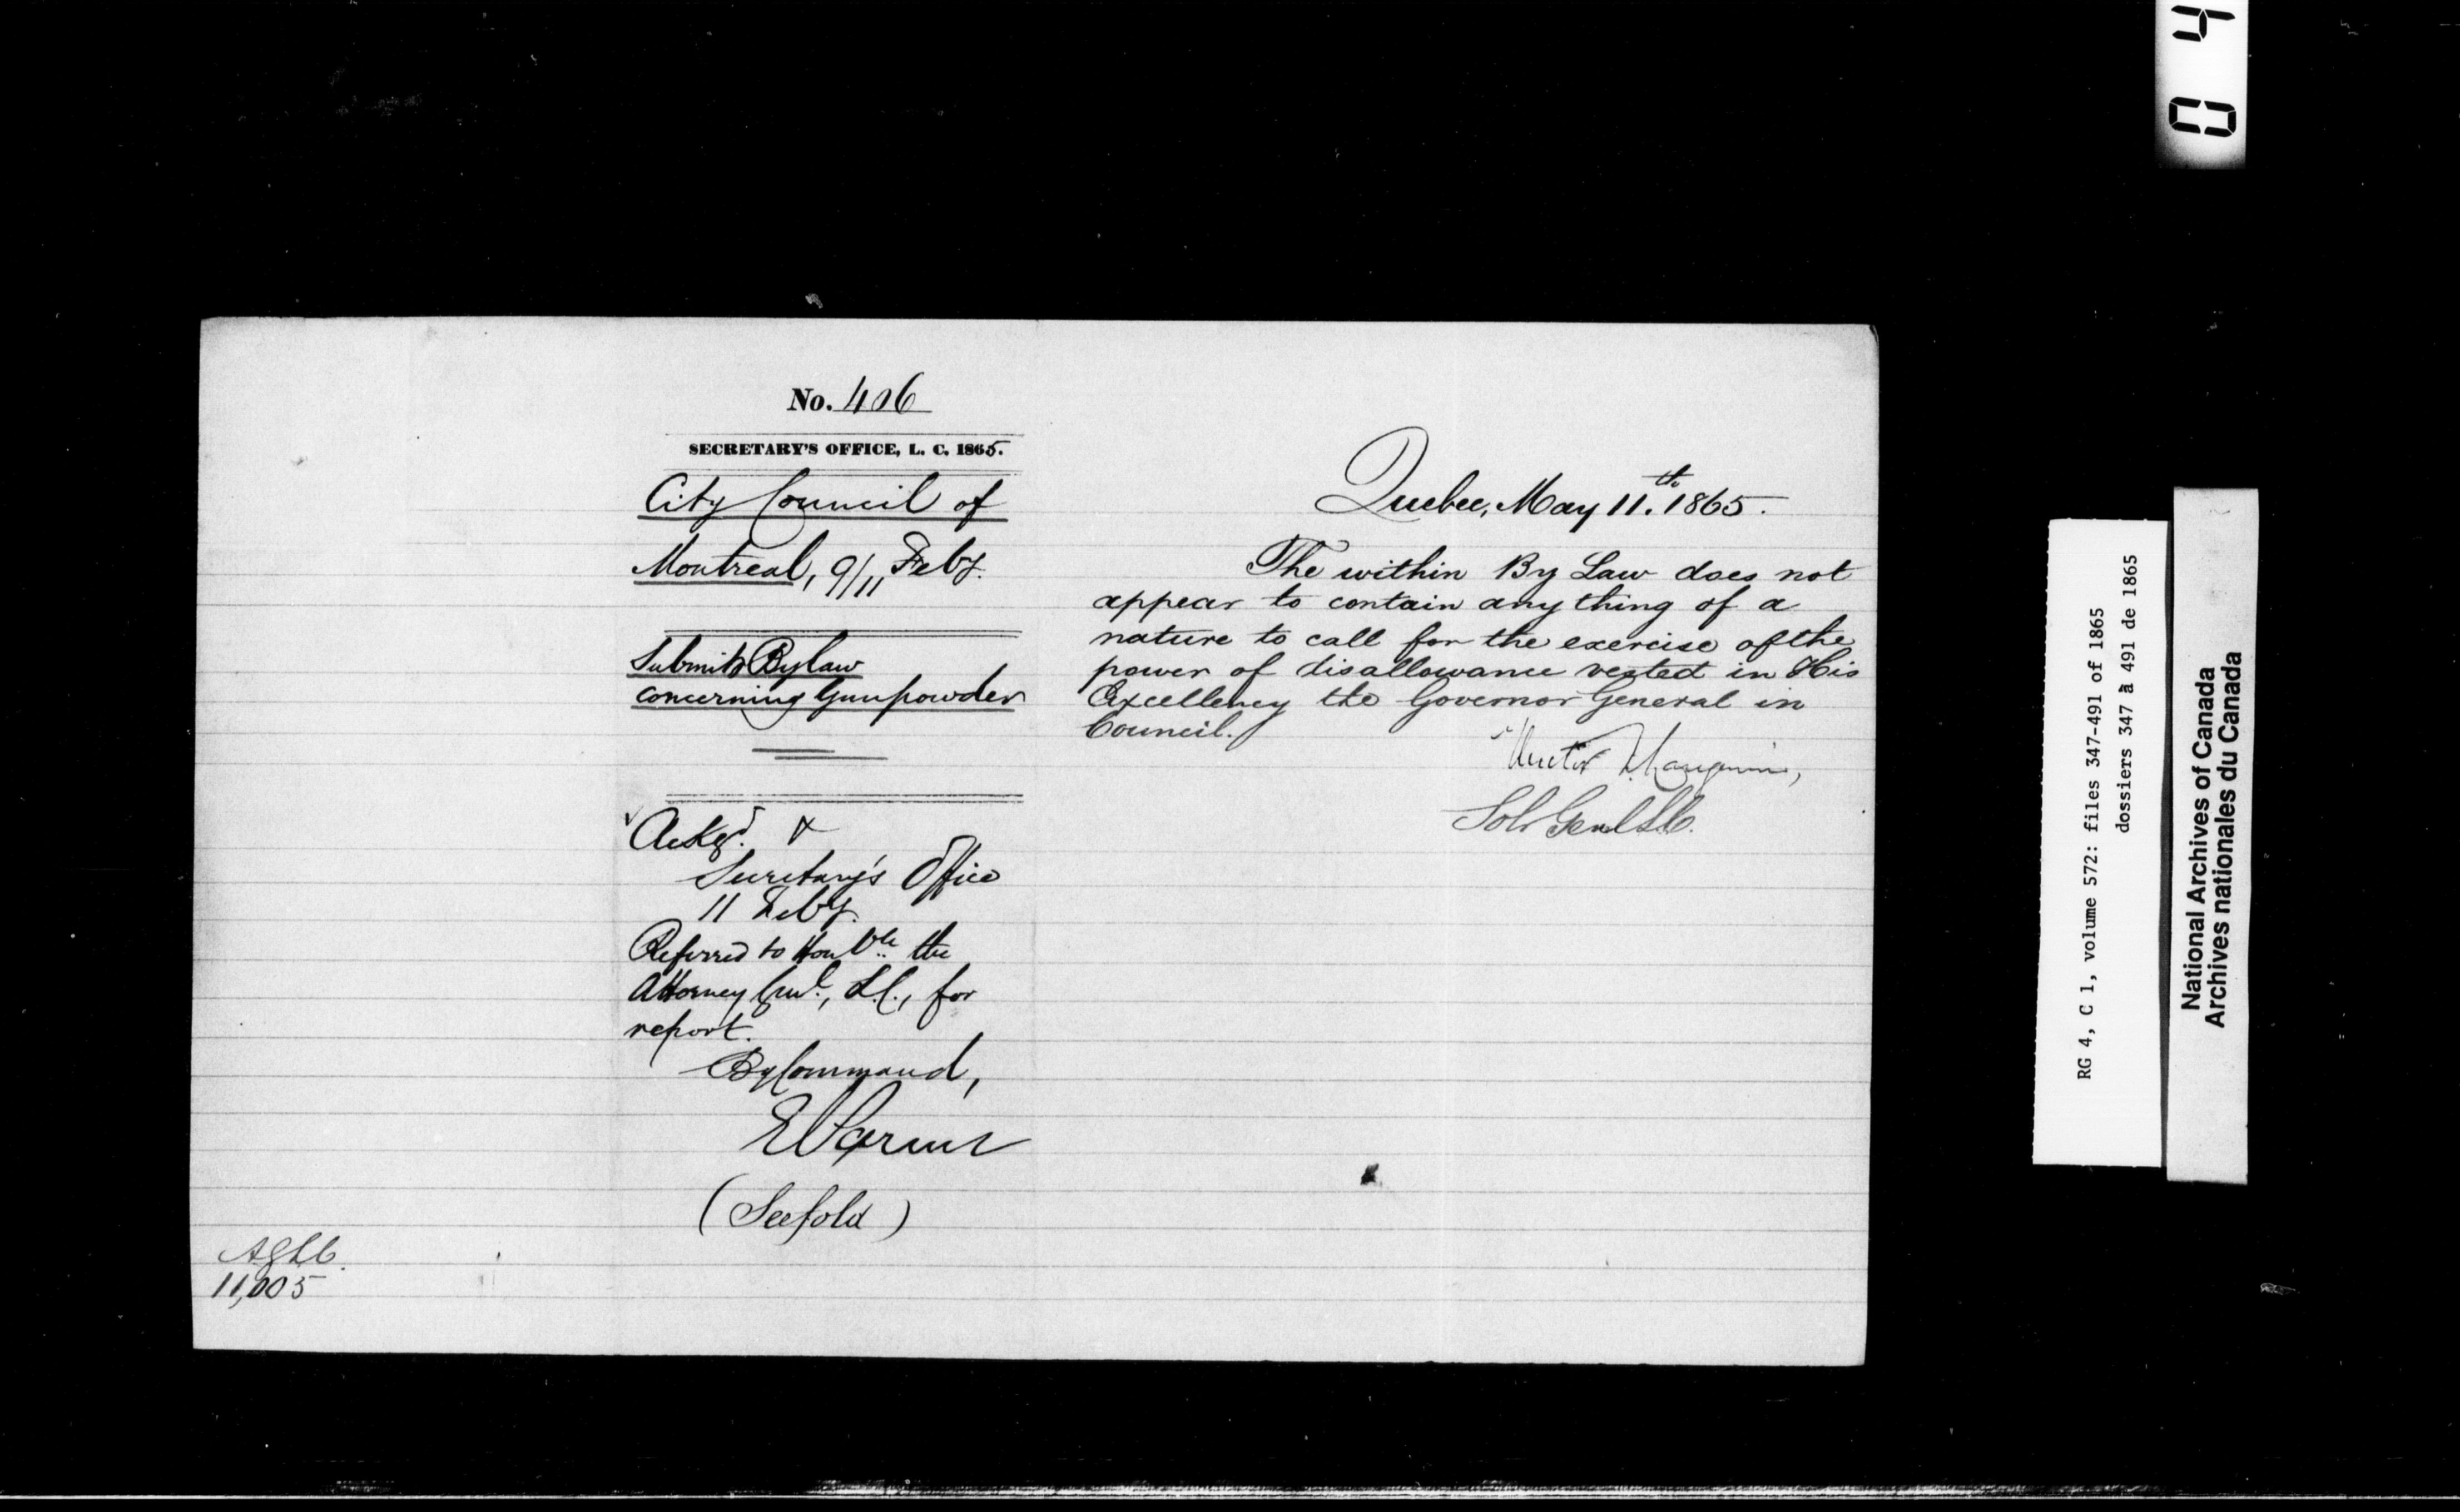 No. 406
SECRETARY'S OFFICE, L. C. 1865.
City Council of
Montreal, 9/11 Feby.
Submits Bylaw
concerning Gunpowder
Ackgd. &
Secretary's Office
11 Feby.
Referred to Honble. the
Attorney Genl., L.C., for
report.
By Command,
E Parent
(See fold)
A G L C.
11,005
Quebec, May 11th. 1865.
The within By Law does not
appear to contain any thing of a
nature to call for the exercise of the
power of disallowance vested in His
Excellency the Governor General in
Council.
Hector L. Langevin,
Solr Genl L C.
04
RG 4, C 1, volume 572: files 347-491 of 1865
dossiers 347 à 491 de 1865
National Archives of Canada
Archives nationales du Canada